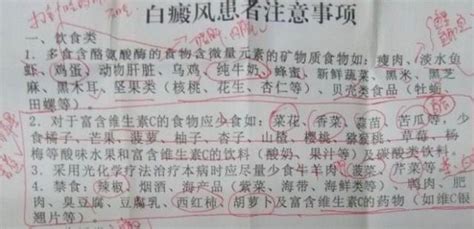 白癜风患者注意事项
一、饮食类
1. 多食含酪氨酸酶的食物含微量元素的矿物质食物如：瘦肉、淡水鱼
虾、鸡蛋、动物肝脏、乌鸡、纯牛奶、蜂蜜、新鲜蔬菜、黑米、黑芝
麻、黑木耳、坚果类（核桃、花生、杏仁等）、贝壳类食品（牡蛎、
田螺等）。
2. 对于富含维生素C的食物应少食如：菜花、香菜、蒜苗、苦瓜等，少
食橘子、芒果、菠萝、柚子、杏子、山楂、樱桃、猕猴桃、草莓、杨
梅等酸味水果和富含维生素C的饮料（酸奶、果汁等）及碳酸类饮料
3. 采用光化学疗法治疗本病时应尽量少食牛羊肉、菠菜、芹菜等
4. 禁食：辣椒、烟酒、海产品（紫菜、海带、海鲜类等）、鸭肉、肥
肉、臭豆腐、豆腐乳、西红柿、胡萝卜及富含维生素C的药物（如维C银
翘片等）